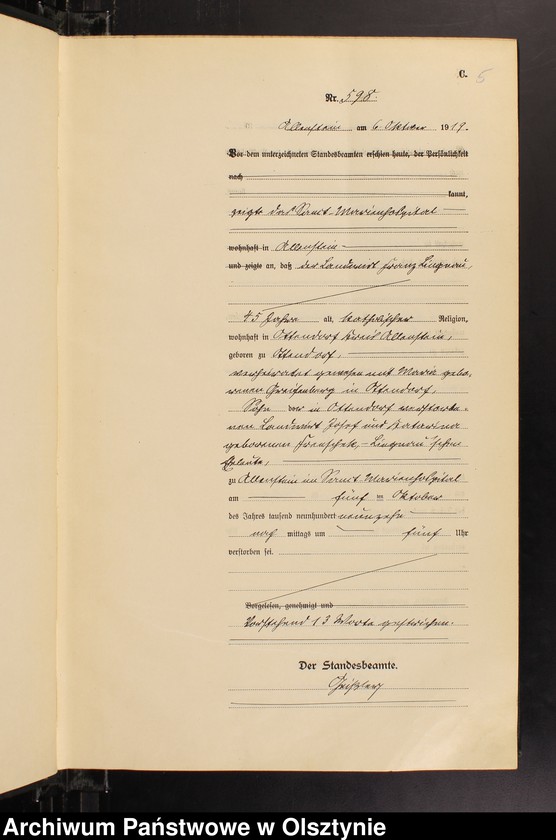 C. 5
Nr. 598.
Allenstein am 6. Oktober 1919.
Vor dem unterzeichneten Standesbeamten erschien heute, der Persönlichkeit
nach
kannt,
zeigte das Sanct-Marienhospital
wohnhaft in Allenstein
und zeigte an, daß der Landwirt Franz Lingnau,
45 Jahre alt, katholischer Religion,
wohnhaft in Ottendorf Kreis Allenstein,
geboren zu Ottendorf,
verheiratet gewesen mit Maria gebo-
renen Greifenberg in Ottendorf,
Sohn der in Ottendorf verstorbe-
nen Landwirt Josef und Katarina
geborenen - Lingnau'schen
Eheleute,
zu Allenstein im Sanct-Marienhospital
am fünf ten Oktober
des Jahres tausend neunhundert neunzehn
nach mittags um fünf Uhr
verstorben sei.
Vorgelesen, genehmigt und
Vorstehend 13 Worte gestrichen.
Der Standesbeamte.
Archiwum Państwowe w Olsztynie